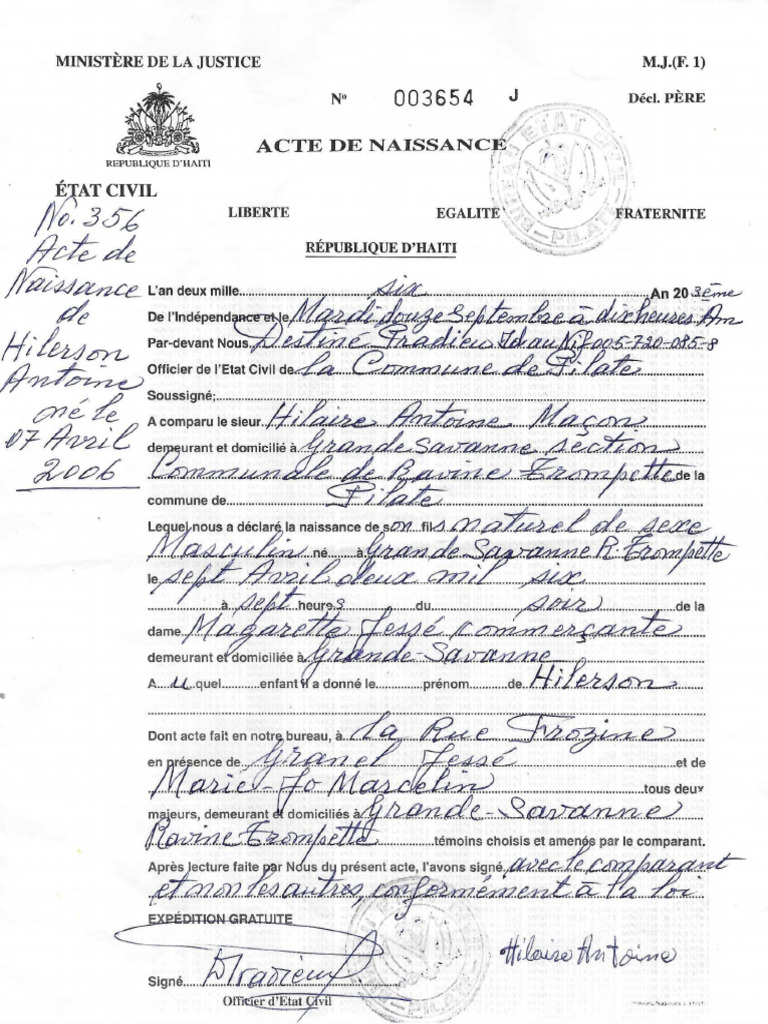 MINISTÈRE DE LA JUSTICE
M.J.(F. 1)
Nº 003654 J
Décl. PÈRE
ACTE DE NAISSANCE
REPUBLIQUE D'HAITI
ÉTAT CIVIL
LIBERTE EGALITE FRATERNITE
RÉPUBLIQUE D'HAITI
No. 356
Acte de
Naissance
de
Hilerson
Antoine
né le
07 Avril
2006
BUREAU ETAT CIVIL
PILATE
L'an deux mille six An 203ème
De l'Indépendance et le Mardi douze Septembre à dix heures Am
Par-devant Nous, Destiné Pradieu Id au Nif 005-720-085-8
Officier de l'Etat Civil de La Commune de Pilate
Soussigné;
A comparu le sieur Hilaire Antoine Maçon
demeurant et domicilié à Grande Savanne section
Communale de Ravine Trompette de la
commune de Pilate
Lequel nous a déclaré la naissance de son fils naturel de sexe
Masculin né à Grande Savanne R. Trompette
le sept Avril deux mil six
à sept heures du soir de la
dame Magarette Jessé commerçante
demeurant et domiciliée à Grande-Savanne
A u quel enfant il a donné le prénom de Hilerson
Dont acte fait en notre bureau, à La Rue Frozine
en présence de Granel Jessé et de
Marie-Jo Marcelin tous deux
majeurs, demeurant et domiciliés à Grande-Savanne
Ravine Trompette témoins choisis et amenés par le comparant.
Après lecture faite par Nous du présent acte, l'avons signé, avec le comparant
et non les autres, conformément à la loi
EXPÉDITION GRATUITE
Hilaire Antoine
Signé
Officier d'Etat Civil
PILATE